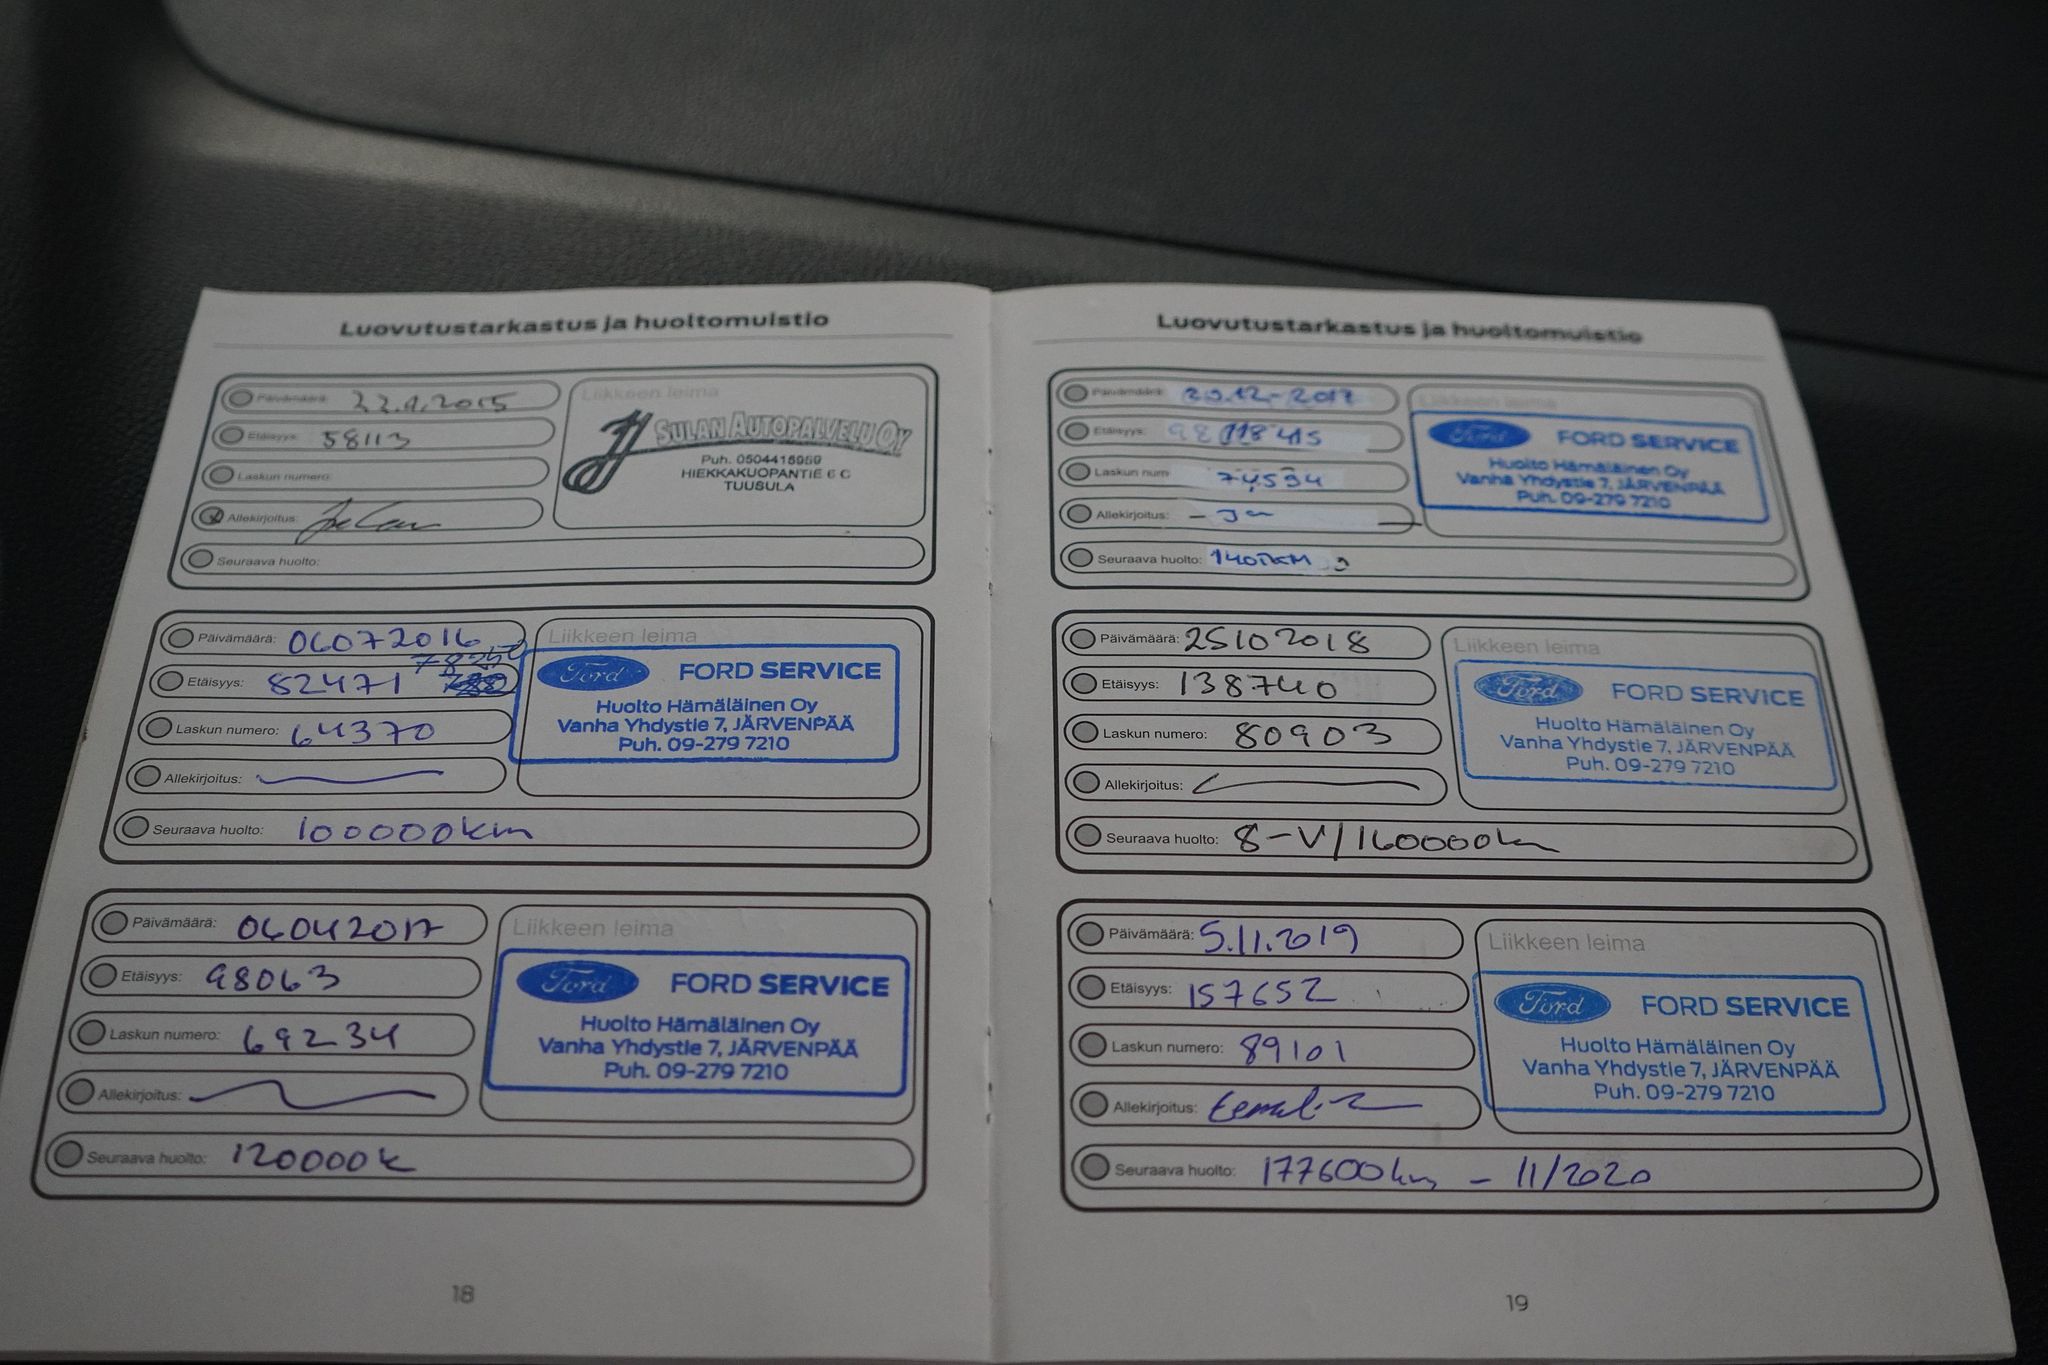 Luovutustarkastus ja huoltomuistio
Päivämäärä: 22.9.2015
Etäisyys: 58113
Laskun numero:
Allekirjoitus:
Seuraava huolto:
Liikkeen leima
SULAN AUTOPALVELU OY
Puh. 0504415959
HIEKKAKUOPANTIE 6 C
TUUSULA
Päivämäärä: 06072016
Etäisyys: 82471
Laskun numero: 64370
Allekirjoitus:
Seuraava huolto: 100000km
Liikkeen leima
Ford FORD SERVICE
Huolto Hämäläinen Oy
Vanha Yhdystie 7, JÄRVENPÄÄ
Puh. 09-279 7210
Päivämäärä: 06042017
Etäisyys: 98063
Laskun numero: 69234
Allekirjoitus:
Seuraava huolto: 120000k
Liikkeen leima
Ford FORD SERVICE
Huolto Hämäläinen Oy
Vanha Yhdystie 7, JÄRVENPÄÄ
Puh. 09-279 7210
18
Luovutustarkastus ja huoltomuistio
Päivämäärä: 20.12-2017
Etäisyys: 118415
Laskun num 74534
Allekirjoitus:
Seuraava huolto: 140TKM
Liikkeen leima
Ford FORD SERVICE
Huolto Hämäläinen Oy
Vanha Yhdystie 7, JÄRVENPÄÄ
Puh. 09-279 7210
Päivämäärä: 25102018
Etäisyys: 138740
Laskun numero: 80903
Allekirjoitus:
Seuraava huolto: 8-V/160000km
Liikkeen leima
Ford FORD SERVICE
Huolto Hämäläinen Oy
Vanha Yhdystie 7, JÄRVENPÄÄ
Puh. 09-279 7210
Päivämäärä: 5.11.2019
Etäisyys: 157652
Laskun numero: 89101
Allekirjoitus:
Seuraava huolto: 177600km - 11/2020
Liikkeen leima
Ford FORD SERVICE
Huolto Hämäläinen Oy
Vanha Yhdystie 7, JÄRVENPÄÄ
Puh. 09-279 7210
19